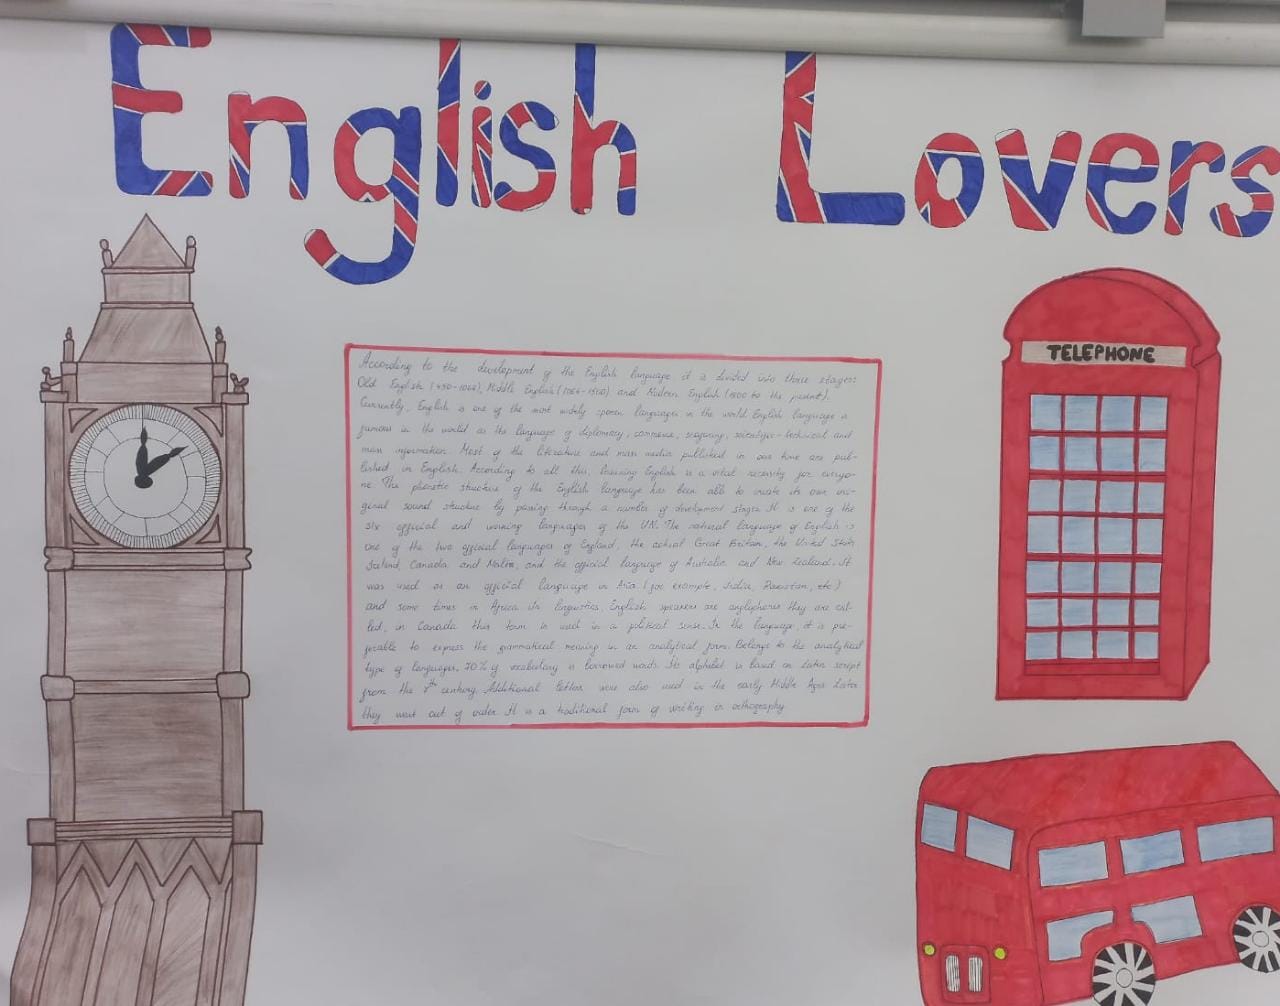 English Lovers
TELEPHONE
According to the development of the English language it is divided into three stages:
Old English (450-1066), Middle English (1066-1500) and Modern English (1500 to the present).
Currently, English is one of the most widely spoken languages in the world. English language is
famous in the world as the language of diplomacy, commerce, seagoing, scientific-technical and
mass information. Most of the literature and mass media published in our time are pub-
lished in English. According to all this, learning English is a vital necessity for everyo-
ne. The phonetic structure of the English language has been able to create its own ori-
ginal sound structure by passing through a number of development stages. It is one of the
six official and working languages of the UN. The national language of English is
one of the two official languages of England, the actual Great Britain, the United State
Ireland, Canada and Malta, and the official language of Australia and New Zealand. It
was used as an official language in Asia (for example, India, Pakistan, etc)
and some times in Africa. In linguistics, English speakers are anglophones they are cal-
led, in Canada this term is used in a political sense. In the language, it is pre-
ferable to express the grammatical meaning in an analytical form. Belongs to the analytical
type of languages. 70% of vocabulary is borrowed words. Its alphabet is based on Latin script
from the century. Additional letters were also used in the early Middle Ages. Later
they went out of It is a traditional form of writing in orthography.